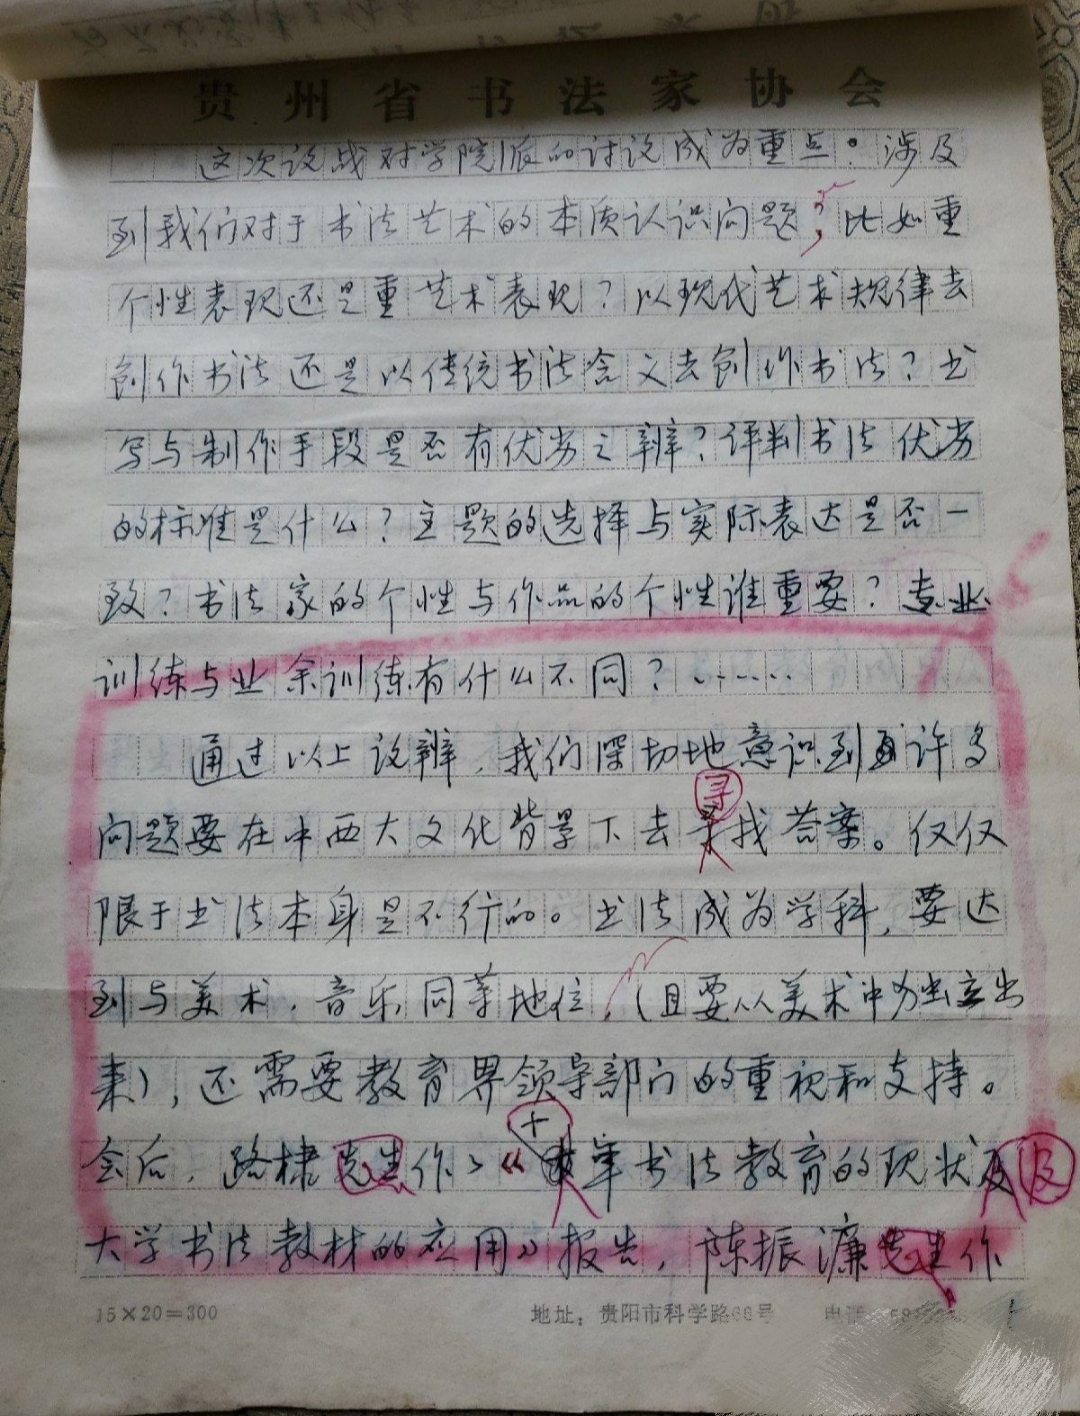 贵州省书法家协会
这次论战对学院派的讨论成为重点。涉及
到我们对于书法艺术的本质认识问题，比如重
个性表现还是重艺术表现？以现代艺术规律去
创作书法还是以传统书法含义去创作书法？书
写与制作手段是否有优劣之辨？评判书法优劣
的标准是什么？主题的选择与实际表达是否一
致？书法家的个性与作品的个性谁重要？专业
训练与业余训练有什么不同？……
通过以上论辨，我们深切地意识到许多
问题要在中西大文化背景下去寻找答案。仅仅
限于书法本身是不行的。书法成为学科，要达
到与美术、音乐同等地位，（且要从美术中独立出
来），还需要教育界领导部门的重视和支持。
会后，路棣先生作了《十年书法教育的现状及
大学书法教材的应用》报告，陈振濂先生作
15×20=300 地址：贵阳市科学路66号 电话